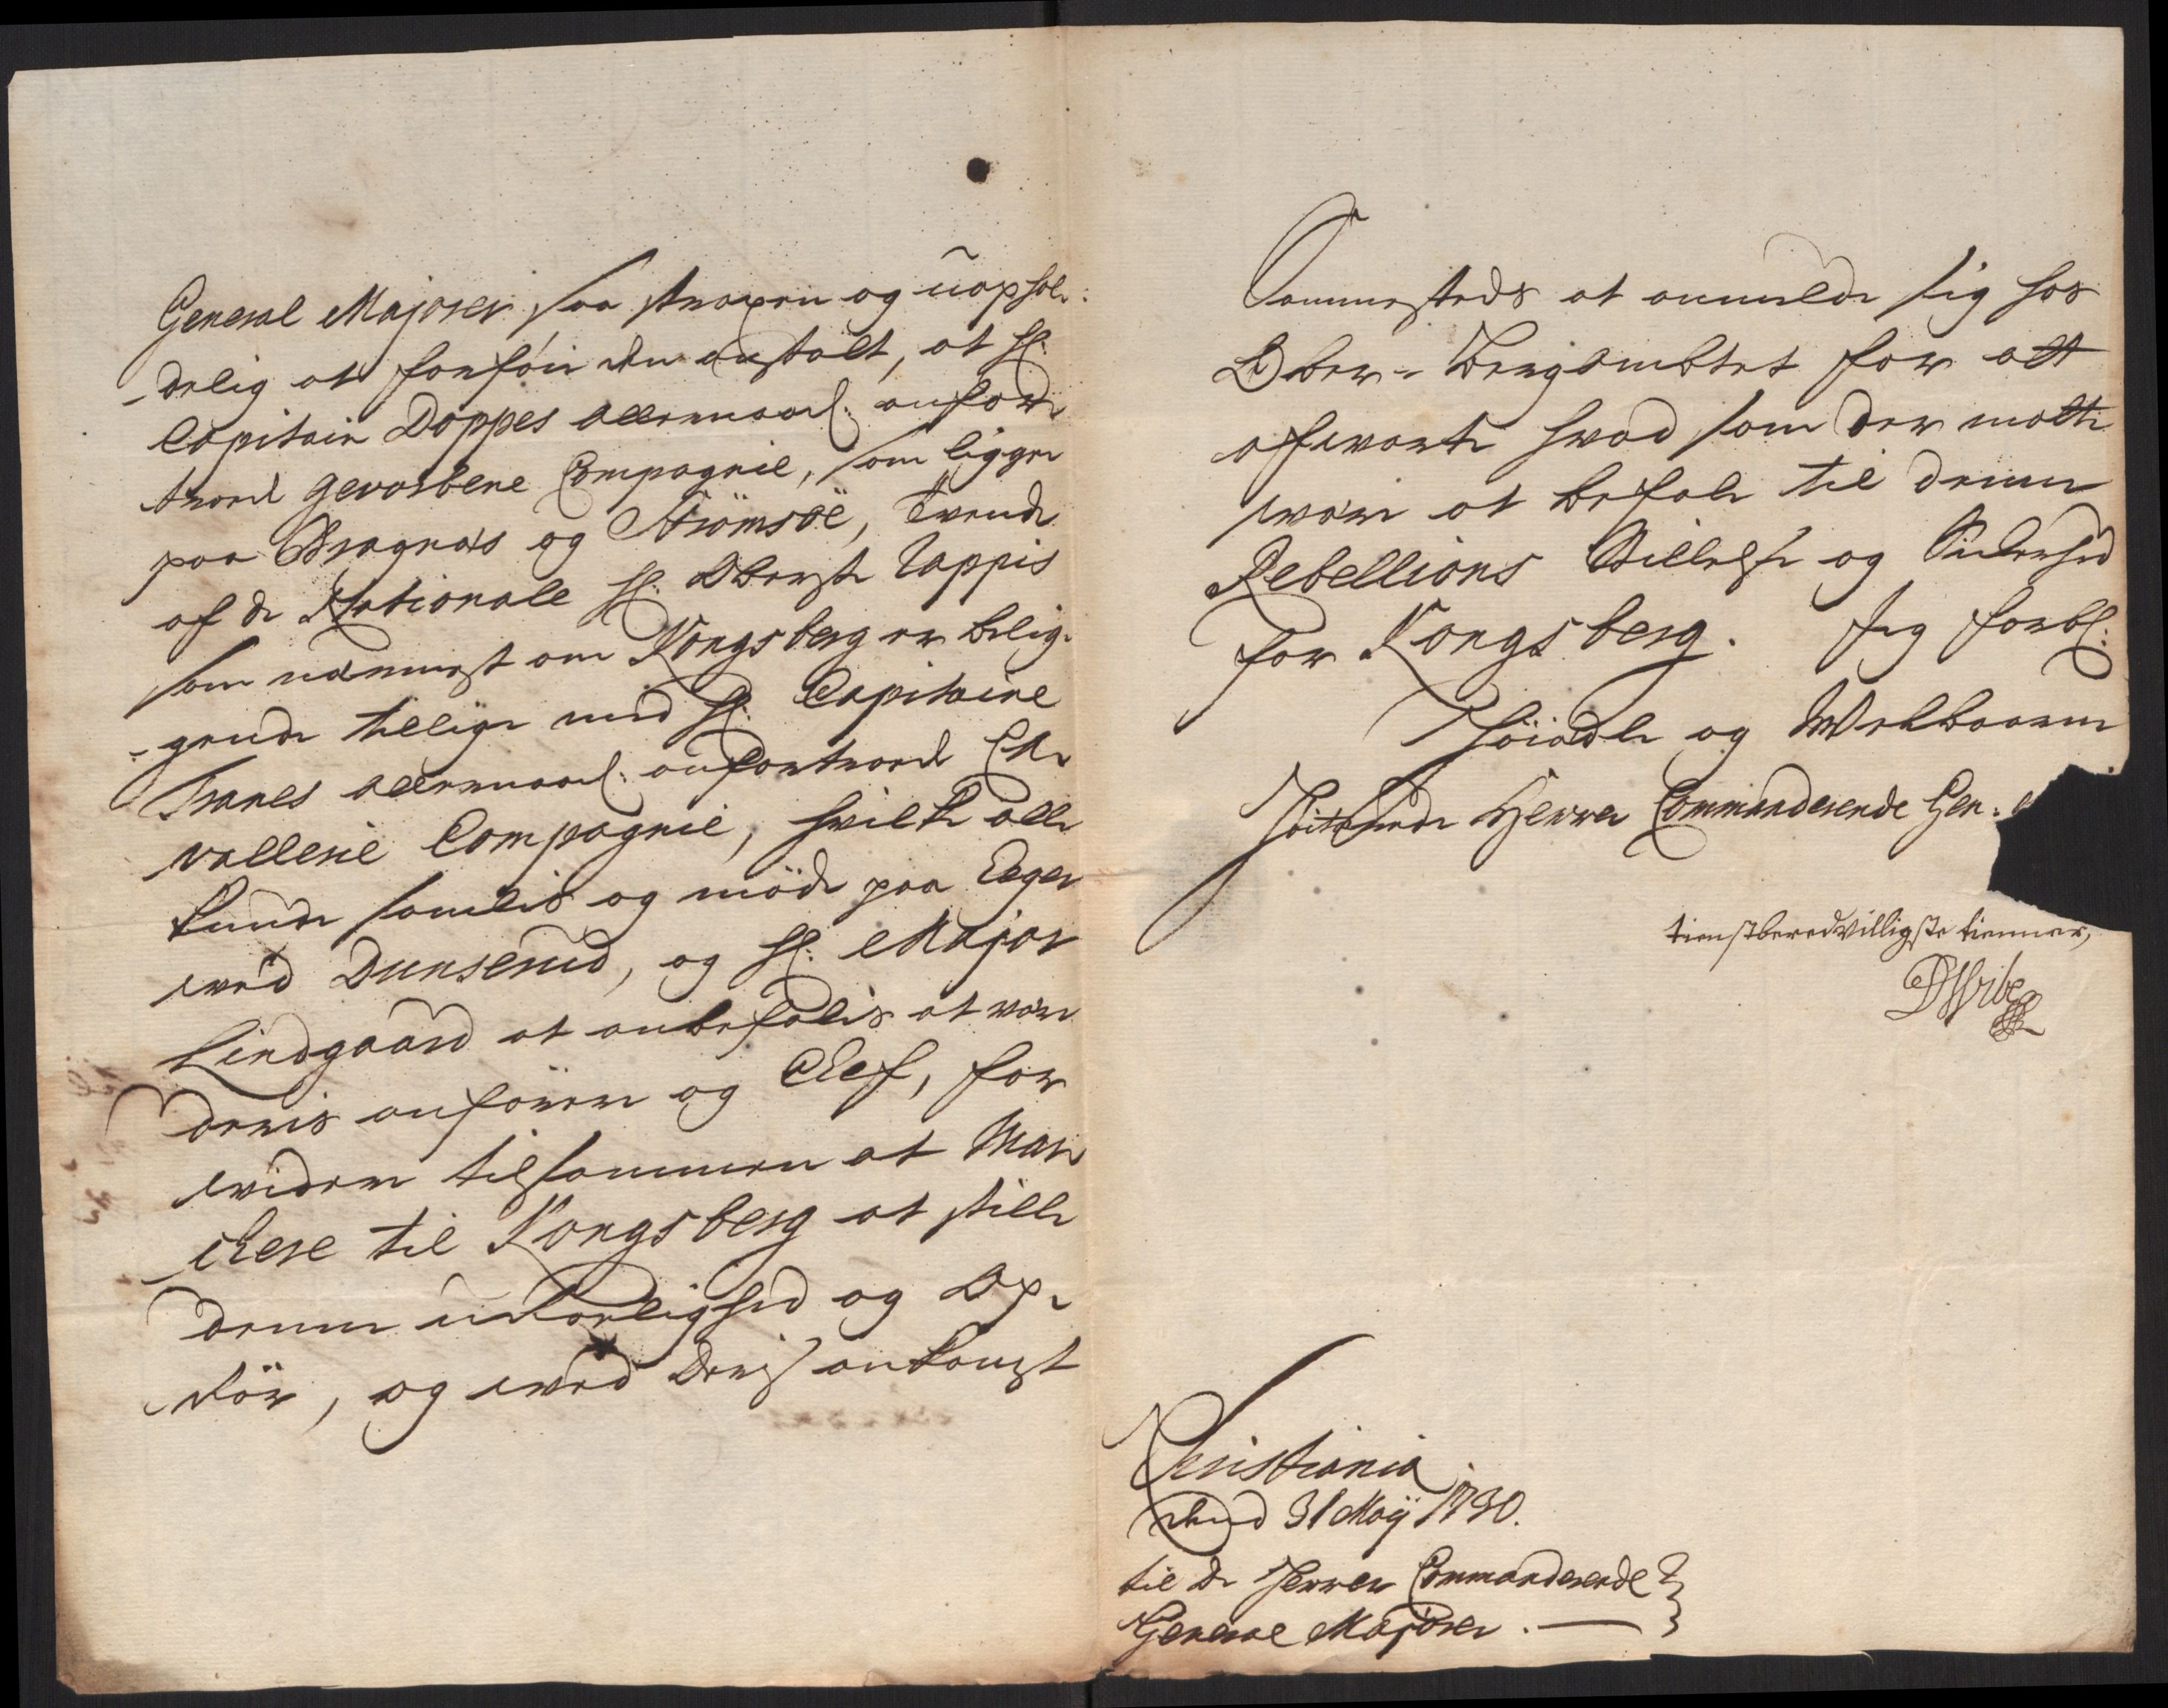 General Majorer saa straxen og uophol:
-delig at forföie den anstalt, at H:
Capitain Doppes allernaad: anfor-
troed Gevorbene Compagnie, som ligger
paa Bragnæs og Strömsöe, tvende
af de Nationale H: Oberste Tappis
som nærmest om Kongsberg er belig-
-gende tillige med H: Capitaine
Tranes allernaad: anfortroede Ca-
vallerie Compagnie, hvilke alle
kunde samlis og möde paa Eger
ved Dunserud, og H: Major
Lindgaard at anbefalis at være
deris anförer og Chef, for
videre tilsammen at Mar-
chere til Kongsberg at stille
denne uroelighed og Op-
rör, og ved deris ankomst
Sammesteds at anmelde sig hos
Ober-Bergambtet for at
afvarte hvad som der motte
være at befale til denne
Rebellions Stillelse og Sickerhed
for Kongsberg. Jeg forbl:
Höiædle og Velbaarne
Höistærede Herrer Commanderende Gen:
tienstberedvilligste tienner,
DVibe
Christiania
dend 31 Maÿ 1730.
til de Herrer Commanderende
General Majorer.